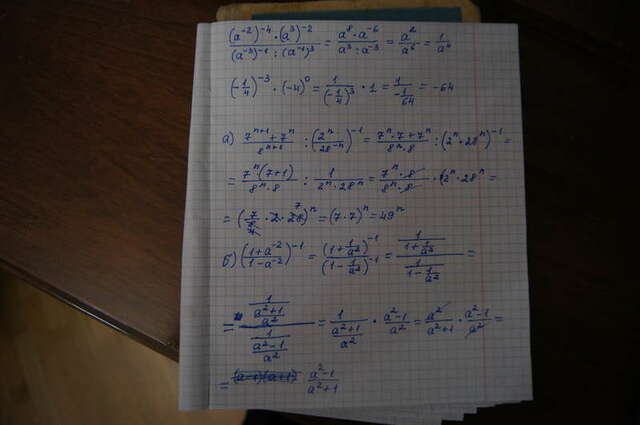 (a⁻²)⁻⁴ · (a³)⁻² / (a⁻³)⁻¹ : (a⁻¹)³ = a⁸ · a⁻⁶ / a³ : a⁻³ = a² / a⁶ = 1 / a⁴
(-1/4)⁻³ · (-4)⁰ = 1 / (-1/4)³ · 1 = 1 / -1/64 = -64
а) 7ⁿ⁺¹ + 7ⁿ / 8ⁿ⁺¹ : (2ⁿ / 28⁻ⁿ)⁻¹ = 7ⁿ · 7 + 7ⁿ / 8ⁿ · 8 : (2ⁿ · 28ⁿ)⁻¹ =
= 7ⁿ(7+1) / 8ⁿ · 8 : 1 / 2ⁿ · 28ⁿ = 7ⁿ · 8 / 8ⁿ · 8 · (2ⁿ · 28ⁿ =
= (7/8 4 · 2 · 28 7)ⁿ = (7 · 7)ⁿ = 49ⁿ
б) (1 + a⁻² / 1 - a⁻²)⁻¹ = (1 + 1/a²)⁻¹ / (1 - 1/a²)⁻¹ = 1 / 1 + 1/a² / 1 / 1 - 1/a² =
= 1 / a²+1 / a² / 1 / a²-1 / a² = 1 / a²+1 / a² · a²-1 / a² = a² / a²+1 · a²-1 / a² =
= (a-1)(a+1) a²-1 / a²+1